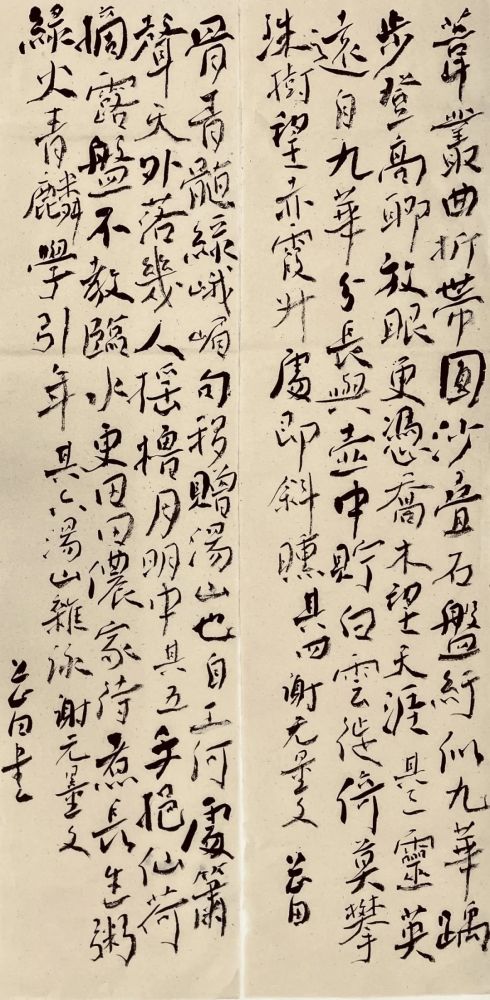 葦叢曲折帶圓沙疊石盤紆似九華踽
步登高聊放眼更憑喬木望天涯其三靈英
遠自九華分長與壺中貯白雲徙倚莫攀
珠樹望赤霞升處即斜曛其四謝無量文
曰
骨青髓綠峨嵋句移贈湯山也自工何處簫
聲天外落幾人搖櫓月明中其五手挹仙荷
摘露盤不教臨水更田田儂家待煮長生粥
綠火青麟學引年其六湯山雜詠謝元量文
曰書